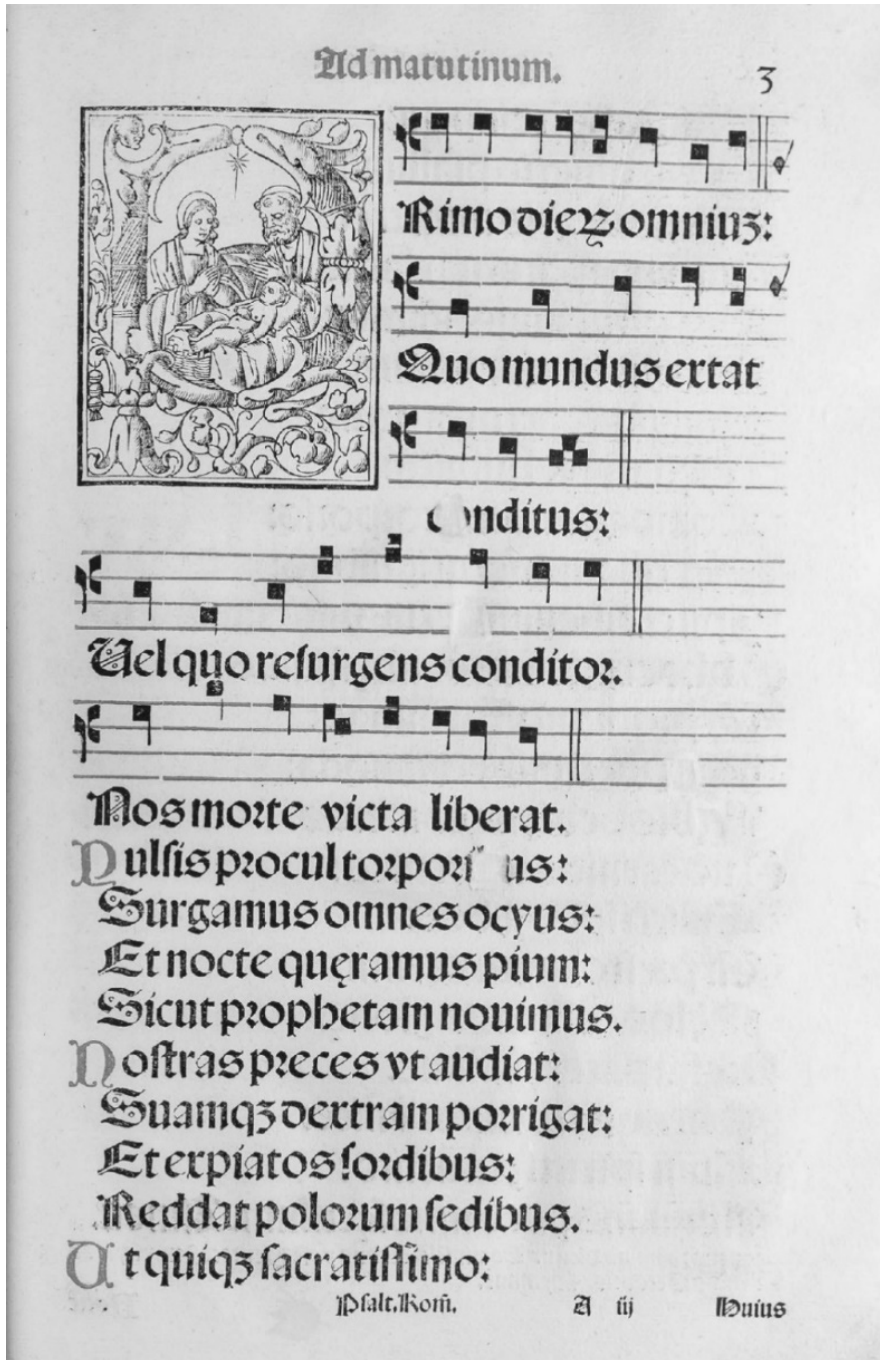 Ad matutinum.
3
PRimo dieꝝ omniuʒ:
Quo mundus extat
conditus:
Uel quo reſurgens conditoꝛ.
Nos moꝛte victa liberat.
Pulſis pꝛocul toꝛpoꝛi us:
Surgamus omnes ocyus:
Et nocte quęramus pium:
Sicut pꝛophetam nouimus.
Noſtras pꝛeces vt audiat:
Suamqʒ dextram poꝛrigat:
Et expiatos ſoꝛdibus:
Reddat poloꝛum ſedibus.
Ut quiqʒ ſacratiſſimo:
Pſalt. Rom̄. A iij Huius